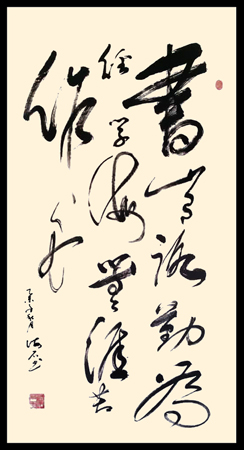 書山有路勤為
徑学海無涯苦
作舟